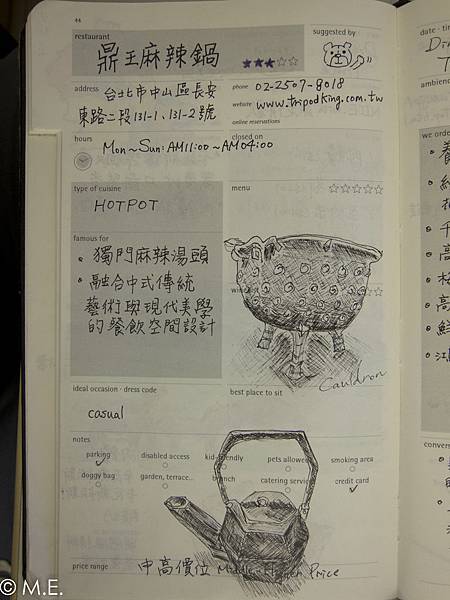 44
restaurant
suggested by
鼎王麻辣鍋
address 台北市中山區長安
東路二段131-1、131-2號
phone 02-2507-8018
website www.tripodking.com.tw
online reservations
hours
Mon~Sun: AM11:00~AM04:00
closed on
type of cuisine
menu
HOTPOT
famous for
• 獨門麻辣湯頭
• 融合中式傳統
藝術與現代美學
的餐飲空間設計
Cauldron
ideal occasion · dress code
best place to sit
casual
notes
parking
disabled access
kid-friendly
pets allowed
smoking area
doggy bag
garden, terrace...
catering service
credit card
price range
中高價位
Price
date · tim
ambienc
we orde
convers
© M.E.